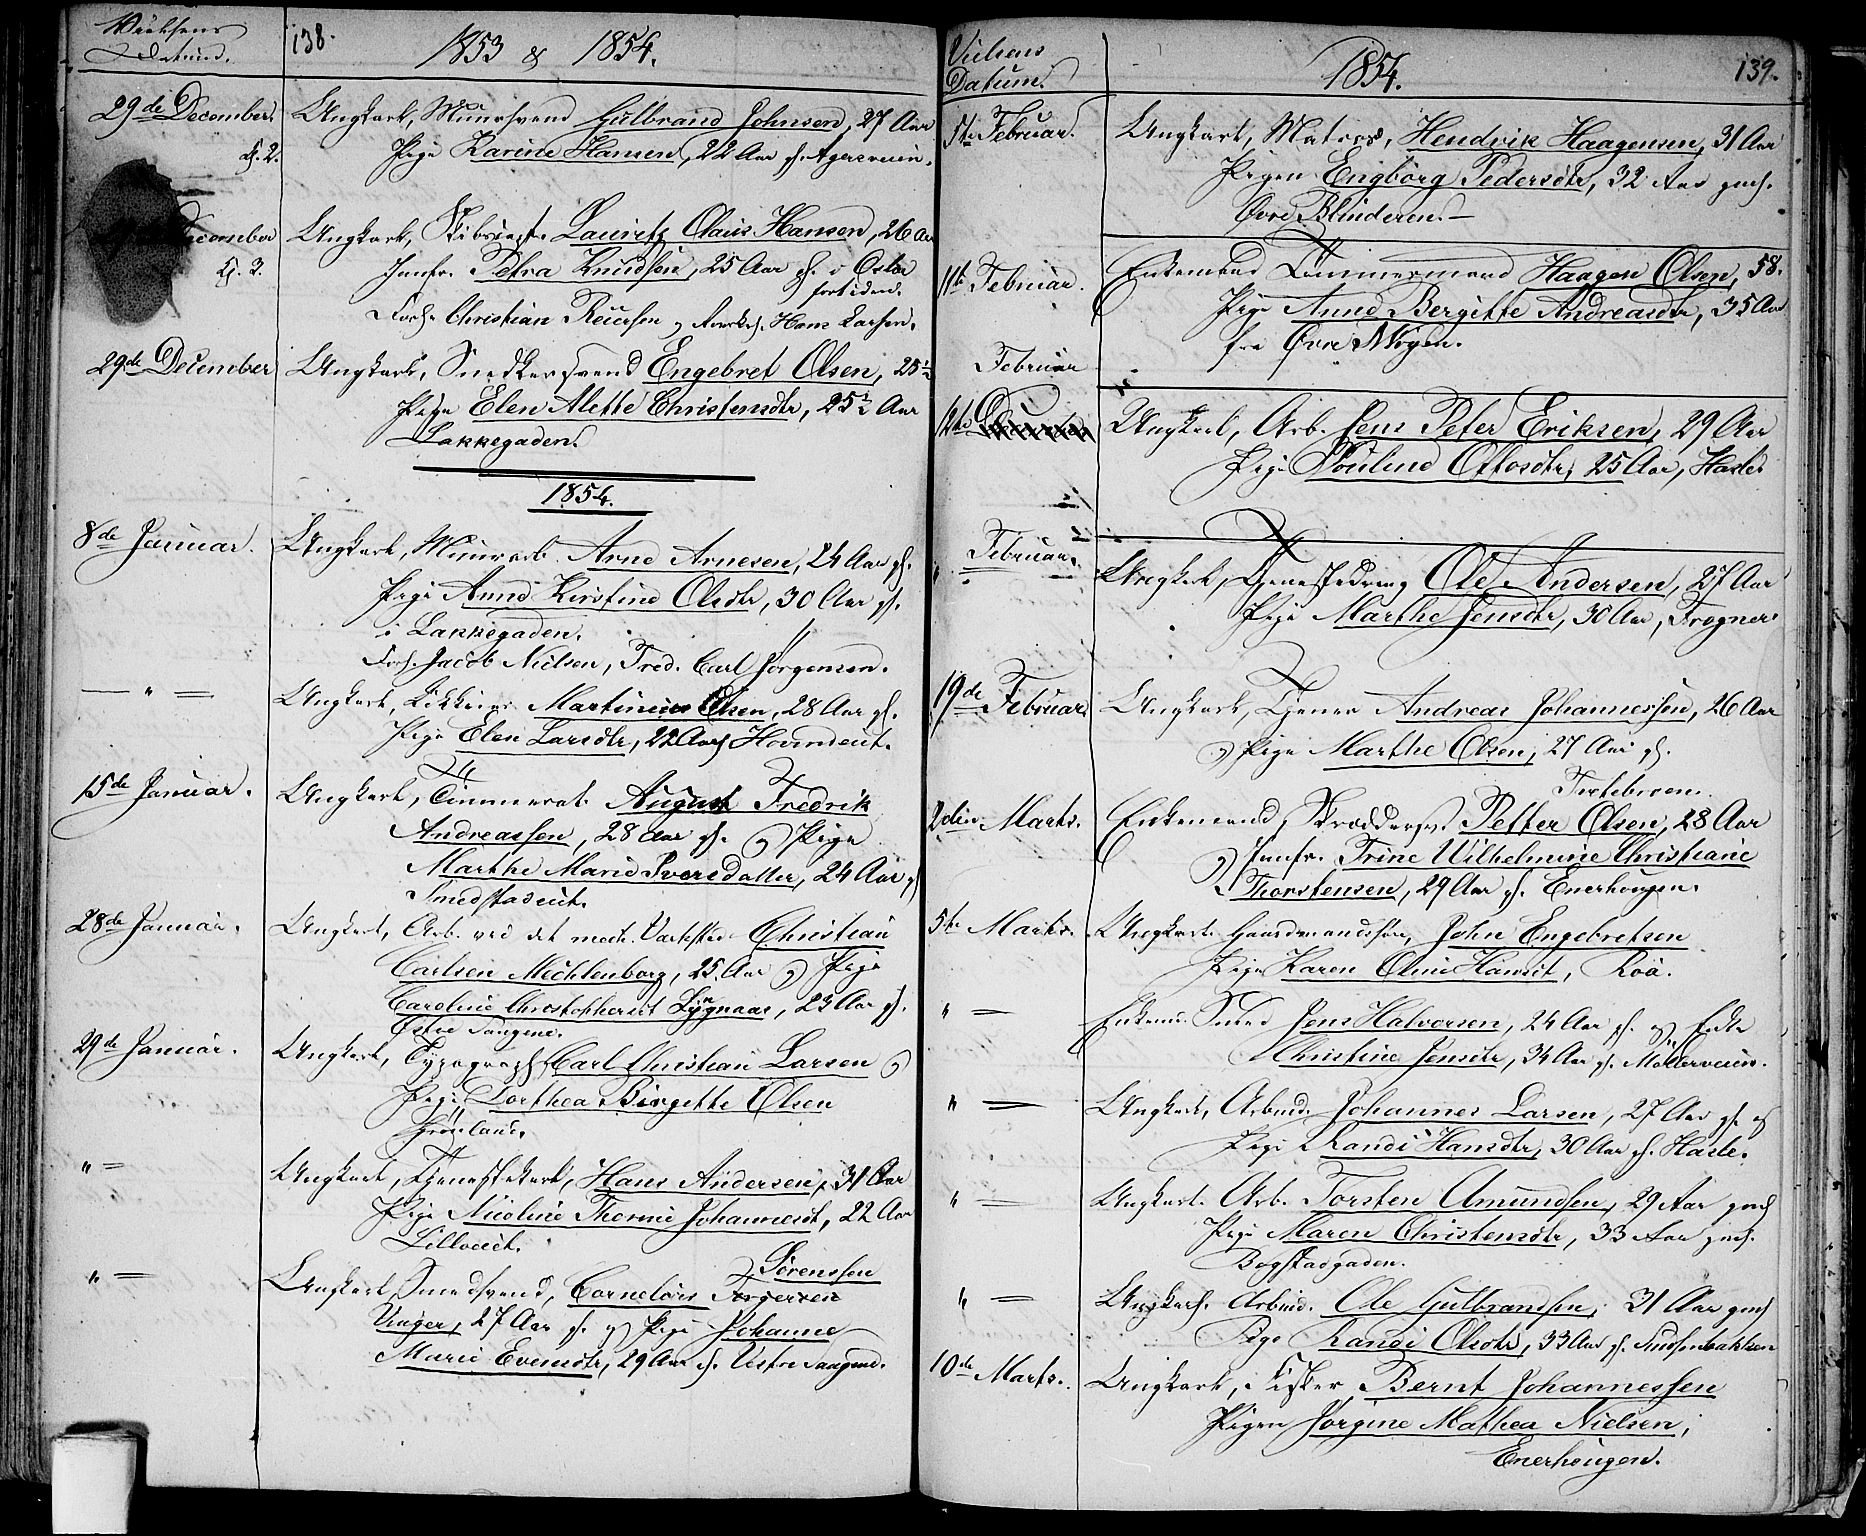 138.
1853 & 1854.
29de December.
Ungkarl, Muursvend Gulbrand Johnsen, 27 Aar
Kl. 2.
Pige Karine Hansen, 22 Aar gl. Agersveien.
December
Ungkarl, Lauritz Olaus Hansen, 26 Aar
Kl. 3.
Jomfr. Petra Knudsen, 25 Aar gl. i Oslo
fortiden.
Forl. Christian Hans Larsen.
29de December
Ungkarl, Snedkersvend Engebret Olsen, 25½
Pige Elen Alette Christensdtr, 25½ Aar
Lakkegaden.
1854.
8de Januar.
Ungkarl, Muurarb. Arne Arnesen, 24 Aar gl.
Pige Anne Kirstine Olsdtr, 30 Aar gl.
i Lakkegaden.
Forl. Jacob Nielsen, Fred. Carl Jørgensen.
— " —
Ungkarl, Martinius Olsen, 28 Aar gl.
Pige Elen Larsdtr, 22 Aar
15de Januar.
Ungkarl, Tømmerat. August Fredrik
Andreassen, 28 Aar gl. og Pige
Marthe Marie Iversdatter, 24 Aar gl
Smedstadeiet.
28de Januar.
Ungkarl, Arb. ved det mech. Værksted Christian
Carlsen Mechlenborg, 25 Aar og Pige
Caroline Christophersdt Lÿgnaas, 23 Aar gl.
Østre Saugene.
29de Januar.
Ungkarl, Typograph Carl Christian Larsen og
Pige Dorthea Birgitte Olsen
Grønland.
" —
Ungkarl, Tjenestekarl, Hans Andersen, 31 Aar
Pige Nicoline Thorine Johannesdt, 22 Aar
" —
Sørenssen
Ungkarl, Smedsvend, Cornelius Torgersen
Unger, 27 Aar gl. og Pige Johanne
Marie Evensdtr, 29 Aar gl. Vestre Saugene.
Vielsens
Datum.
1854.
139.
5te Februar.
Ungkarl, Matros, Hendrik Haagensen, 31 Aar
Pigen Engborg Pedersdtr, 32 Aar gml.
Øvre Blinderen. —
11te Februar.
Enkemand Tømmermand Haagen Olsen, 58.
Pige Anne Bergitte Andreasdtr, 35 Aar
fra Øvre
Februar
12te
Ungkarl, Arb. Jens Peter Eriksen, 29 Aar
Pige Pouline Ottosdtr, 25 Aar, Hasle
" Februar.
Ungkarl, Tjenestedreng Ole Andersen, 27 Aar
Pige Marthe Jensdtr, 30 Aar, Frogner
19de Februar.
Ungkarl, Tjener Andreas Johannessen, 26 Aar
og Pige Marthe Olsen, 27 Aar gl.
Torteberg
2den Marts.
Enkemand, Skræddersv. Petter Olsen, 28 Aar
og Jomfr. Trine Wilhelmine Christiane
Thorstensen, 29 Aar gl. Enerhougen.
5te Marts.
Ungkarl Gaardmandssøn, John Engebretsen
Pige Karen Oline Hansdt, Roa.
" —
Enkem. Smed Jens Halvorsen, 24 Aar gl. og Enke
Christine Jensdtr, 34 Aar gl. Møllerveien.
" —
Ungkarl, Arbeid. Johannes Larsen, 27 Aar gl. og
Pige Randi Hansdtr, 30 Aar gl. Hasle.
" —
Ungkarl Arb. Torsten Amundsen, 29 Aar gml
Pige Maren Christensdtr, 33 Aar gml.
Bogstadgaden.
" —
Ungkarl. Arbeid. Ole Gulbrandsen, 31 Aar gml
Pige Randi Olsdtr, 33 Aar gl.
10de Marts.
Ungkarl, Fisker Bernt Johannessen
Pigen Jørgine Mathea Nielsen,
Enerhougen.